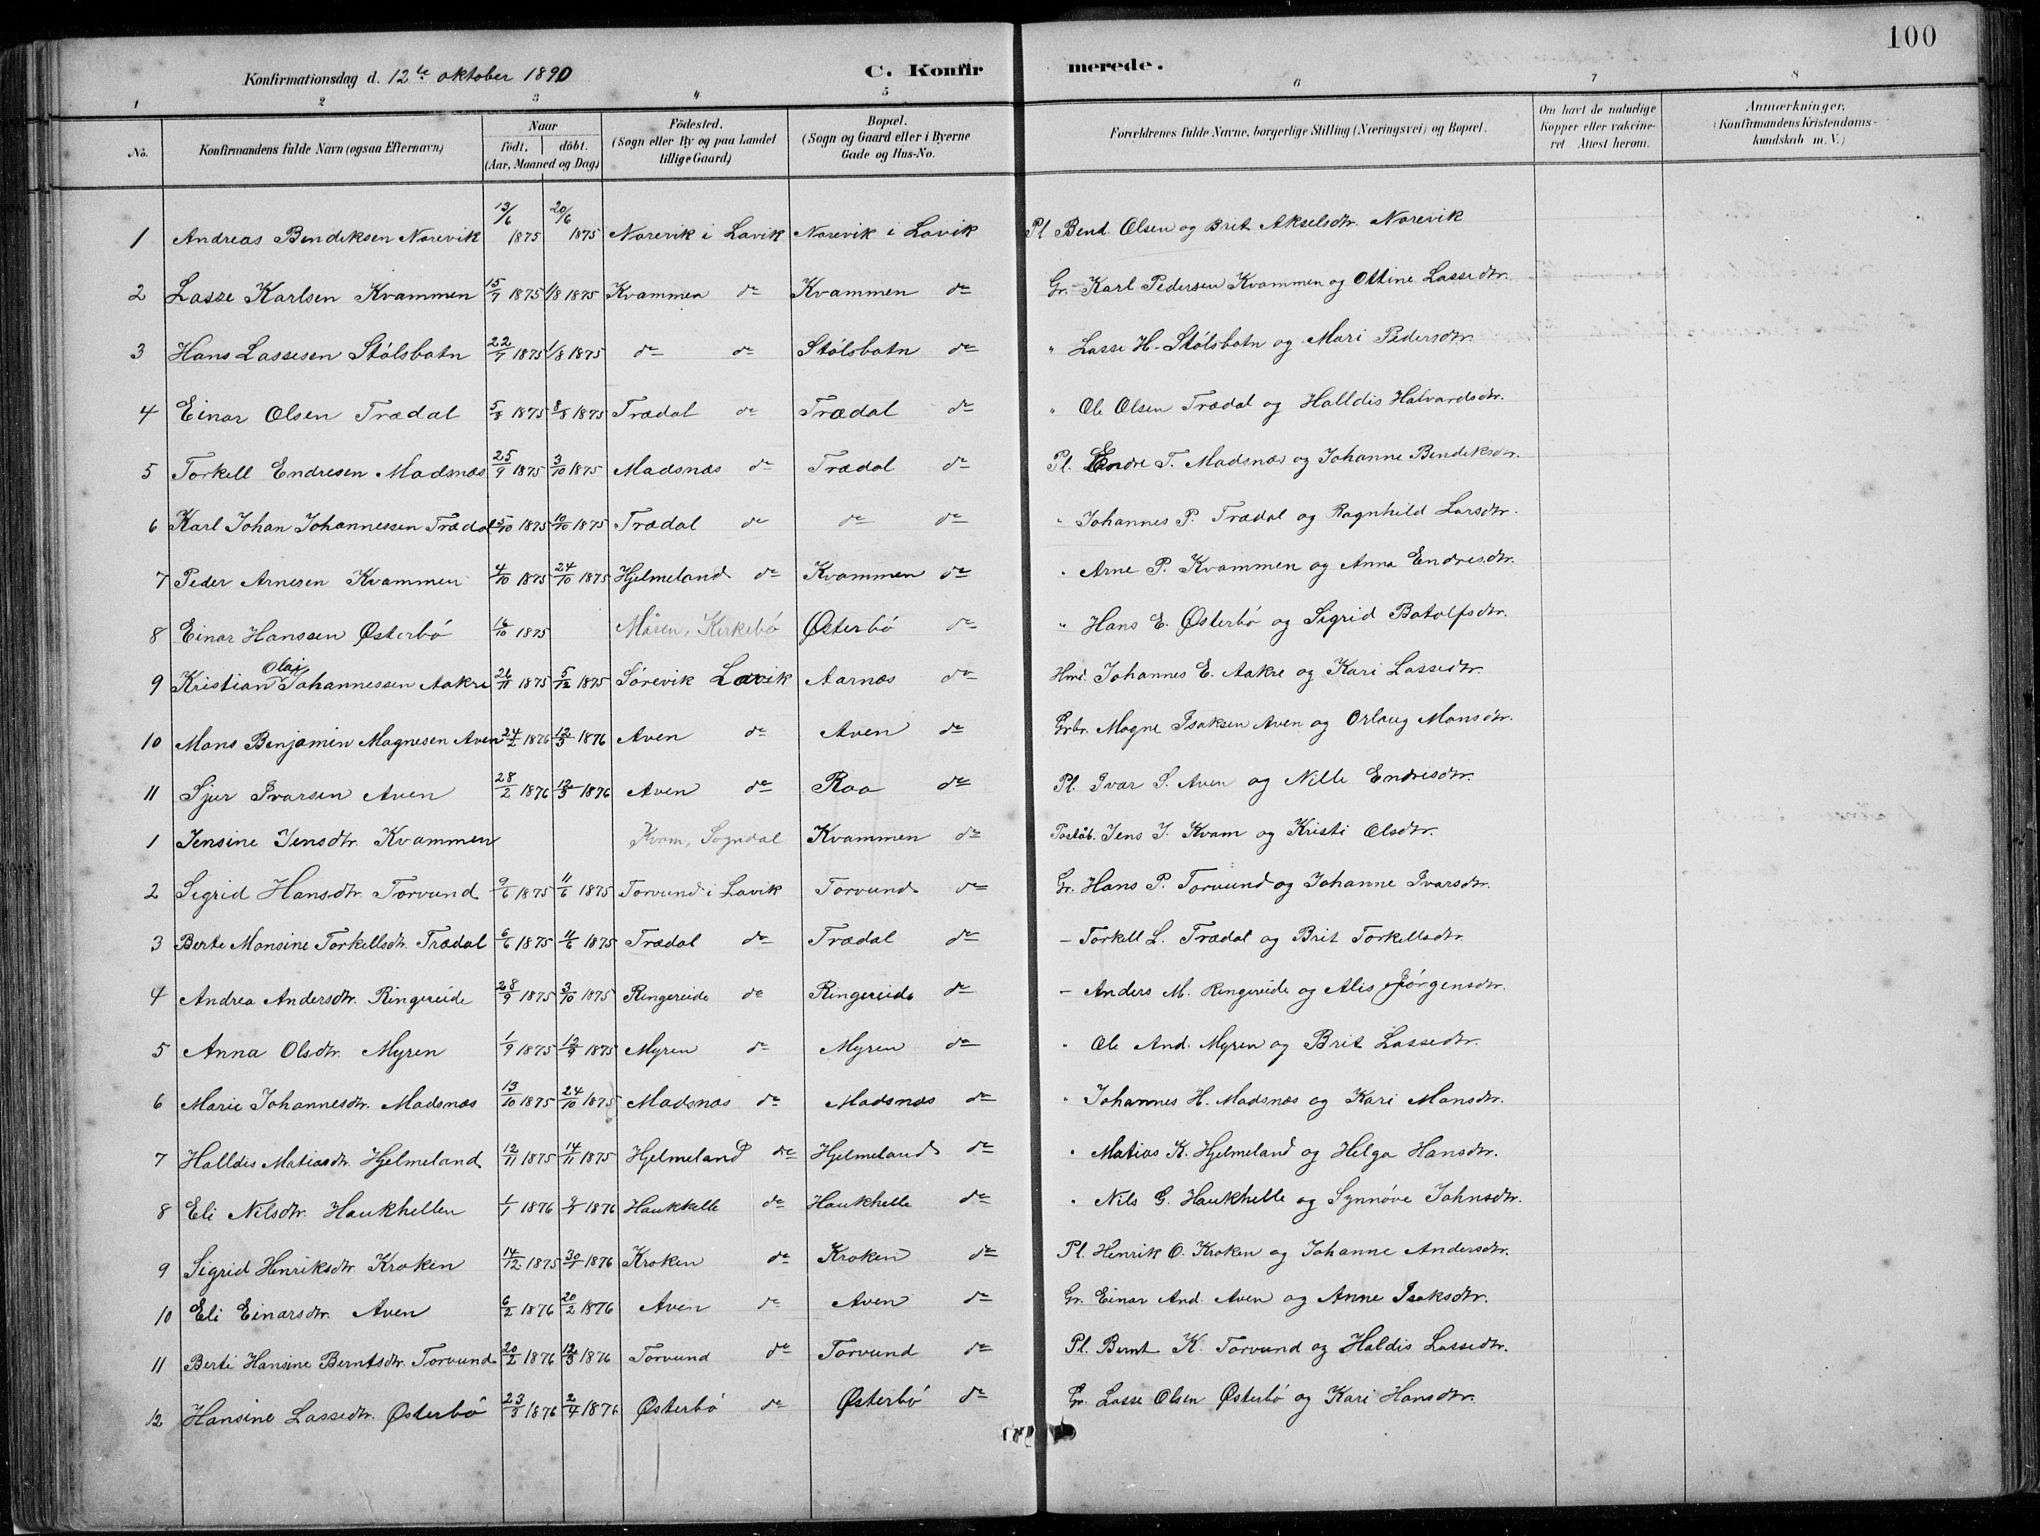 100
Konfirmationsdag d. 12te oktober 1890 C. Konfirmerede.
1 2 3 4 5 6 7 8
No. Konfirmandens fulde Navn (ogsaa Efternavn) Naar født. døbt. (Aar, Maaned og Dag) Fødested. (Sogn eller By og paa Landet tillige Gaard) Bopæl. (Sogn og Gaard eller i Byerne Gade og Hus-No. Forældrenes fulde Navne, borgerlige Stilling (Næringsvei) og Bopæl. Om havt de naturlige Kopper eller vakcineret. Attest herom. Anmærkninger. (Konfirmandens Kristendomskundskab m. V.)
1 Andreas Bendiksen Norevik 13/6 1875 20/6 1875 Norevik i Lavik Norevik i Lavik Pl Bend. Olsen og Brit Akselsdtr. Norevik
2 Lasse Karlsen Kvammen 15/7 1875 1/8 1875 Kvammen do Kvammen do Gr. Karl Pedersen Kvammen og Ottine Lassedtr.
3 Hans Lassesen Stølsbotn 22/7 1875 1/8 1875 do do Stølsbotn do " Lasse H. Stølsbotn og Mari Pedersdtr.
4 Einar Olsen Trædal 5/8 1875 8/8 1875 Trædal do Trædal do " Ole Olsen Trædal og Halldis Halvardsdtr.
5 Torkell Endresen Madsnæs 25/9 1875 3/10 1875 Madsnæs do Trædal do Pl. Endre T. Madsnæs og Johanne Bendiksdtr.
6 Karl Johan Johannessen Trædal 5/10 1875 10/10 1875 Trædal do do do " Johannes P. Trædal og Ragnhild Larsdtr.
7 Peder Arnesen Kvammen 4/10 1875 24/10 1875 Hjelmeland do Kvammen do " Arne P. Kvammen og Anna Endresdtr.
8 Einar Hanssen Østerbø 16/10 1875 Måren, Kirkebø Østerbø do " Hans E. Østerbø og Sigrid Batolfsdtr.
9 Kristian Olai Johannessen Aakre 26/11 1875 5/12 1875 Sørevik Lavik Aarnæs do Hmd. Johannes E. Aakre og Kari Lassedtr.
10 Mons Benjamin Magnesen Aven 24/2 1876 12/3 1876 Aven do Aven do Grbr. Magne Isaksen Aven og Orlaug Monsdtr.
11 Sjur Ivarsen Aven 28/2 1876 12/3 1876 Aven do Raa do Pl. Ivar S. Aven og Nille Endresdtr.
1 Jensine Jensdtr. Kvammen Kvam, Sogndal Kvammen do Poståb. Jens J. Kvam og Kristi Olsdtr.
2 Sigrid Hansdtr. Torvund 9/6 1875 11/6 1875 Torvund i Lavik Torvund do Gr. Hans P. Torvund og Johanne Ivarsdtr.
3 Berte Monsine Torkellsdtr. Trædal 6/6 1875 11/6 1875 Trædal do Trædal do – Torkell L. Trædal og Brit Torkellsdtr.
4 Andrea Andersdtr. Ringereide 28/9 1875 3/10 1875 Ringereide do Ringereide do – Anders M. Ringereide og Alis Jørgensdtr.
5 Anna Olsdtr. Myren 1/9 1875 12/9 1875 Myren do Myren do " Ole And. Myren og Brit Lassedtr.
6 Marie Johannesdtr. Madsnæs 13/10 1875 24/10 1875 Madsnæs do Madsnæs do " Johannes H. Madsnæs og Kari Monsdtr.
7 Halldis Matiasdtr. Hjelmeland 12/11 1875 14/11 1875 Hjelmeland do Hjelmeland do " Matias K. Hjelmeland og Helga Hansdtr.
8 Eli Nilsdtr. Haukhellen 1/1 1876 1876 Haukhelle do Haukhelle do " Nils G. Haukhelle og Synnøve Johnsdtr.
9 Sigrid Henriksdtr. Kroken 14/12 1875 30/1 1876 Kroken do Kroken do Pl. Henrik O. Kroken og Johanne Andersdtr.
10 Eli Einarsdtr. Aven 6/2 1876 20/2 1876 Aven do Aven do Gr. Einar And. Aven og Anne Isaksdtr.
11 Berti Hansine Berntsdtr. Torvund 20/2 1876 12/3 1876 Torvund do Torvund do Pl. Bernt K. Torvund og Haldis Lassedtr.
12 Hansine Lassedtr. Østerbø 23/3 1876 2/4 1876 Østerbø do Østerbø do Gr. Lasse Olsen Østerbø og Kari Hansdtr.